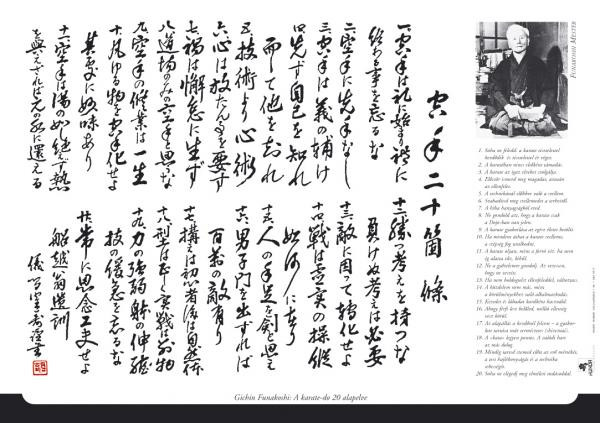 空手二十箇條
一、空手は礼に始まり礼に
終る事を忘るな
二、空手に先手なし
三、空手は義の輔け
四、先づ自己を知れ
而して他を知れ
五、技術より心術
六、心は放たん事を要す
七、禍は懈怠に生ず
八、道場のみの空手と思ふな
九、空手の修業は一生
十、凡ゆる物を空手化せよ
其処に妙味あり
十一、空手は湯の如し絶えず熱
を与えざれば元の水に還える
十二、勝つ考えを持つな
負けぬ考えは必要
十三、敵に因って轉化せよ
十四、戦は虚実の操縦
如何に在り
十五、人の手足を劍と思え
十六、男子門を出づれば
百万の敵有り
十七、構えは初心者後は自然体
十八、型は正しく実戦は別物
十九、力の強弱躰の伸縮
技の緩急を忘るな
二十、常に思念工夫せよ
船越翁遺訓
Funakoshi Mester
1. Soha ne feledd: a karate tisztelettel
kezdődik és tisztelettel ér véget.
2. A karatéban nincs elsőként támadás.
3. A karate az igaz ösvényt szolgálja.
4. Először ismerd meg magadat, azután
az ellenfeled.
5. A technikánál előbbre való a szellem.
6. Szabadítsd meg szellemedet a terhektől.
7. A hiba hanyagságból ered.
8. Ne gondold azt, hogy a karate csak
a Dojo-ban van jelen.
9. A karate gyakorlása az egész életre kötelez.
10. Ha minden dolgot a karate vezérel,
a szépség fog uralkodni.
11. A karate olyan, mint a forró víz: ha nem
ég alatta tűz, kihűl.
12. Ne a győzelemre gondolj. Az veszteni,
hogy ne veszíts.
13. Ha nem boldogulsz ellenfeleddel, változtass.
14. A küzdelem nem más, mint
a körülményekhez való alkalmazkodás.
15. Kezedet és lábadat kardként használd.
16. Ahogy férfi lesz belőled, millió ellenség
vesz körül.
17. Az alapállás a kezdőnek felem – a gyakorlott
számára már természetes (shizentai).
18. A »kata« legyen pontos. A valódi harc
az már dolog.
19. Mindig tartsd szemed előtt az erő mértékét,
a test hajlékonyságát és a technika
sebességét.
20. Soha ne elégedj meg elméleti tudásoddal.
Gichin Funakoshi: A karate-do 20 alapelve